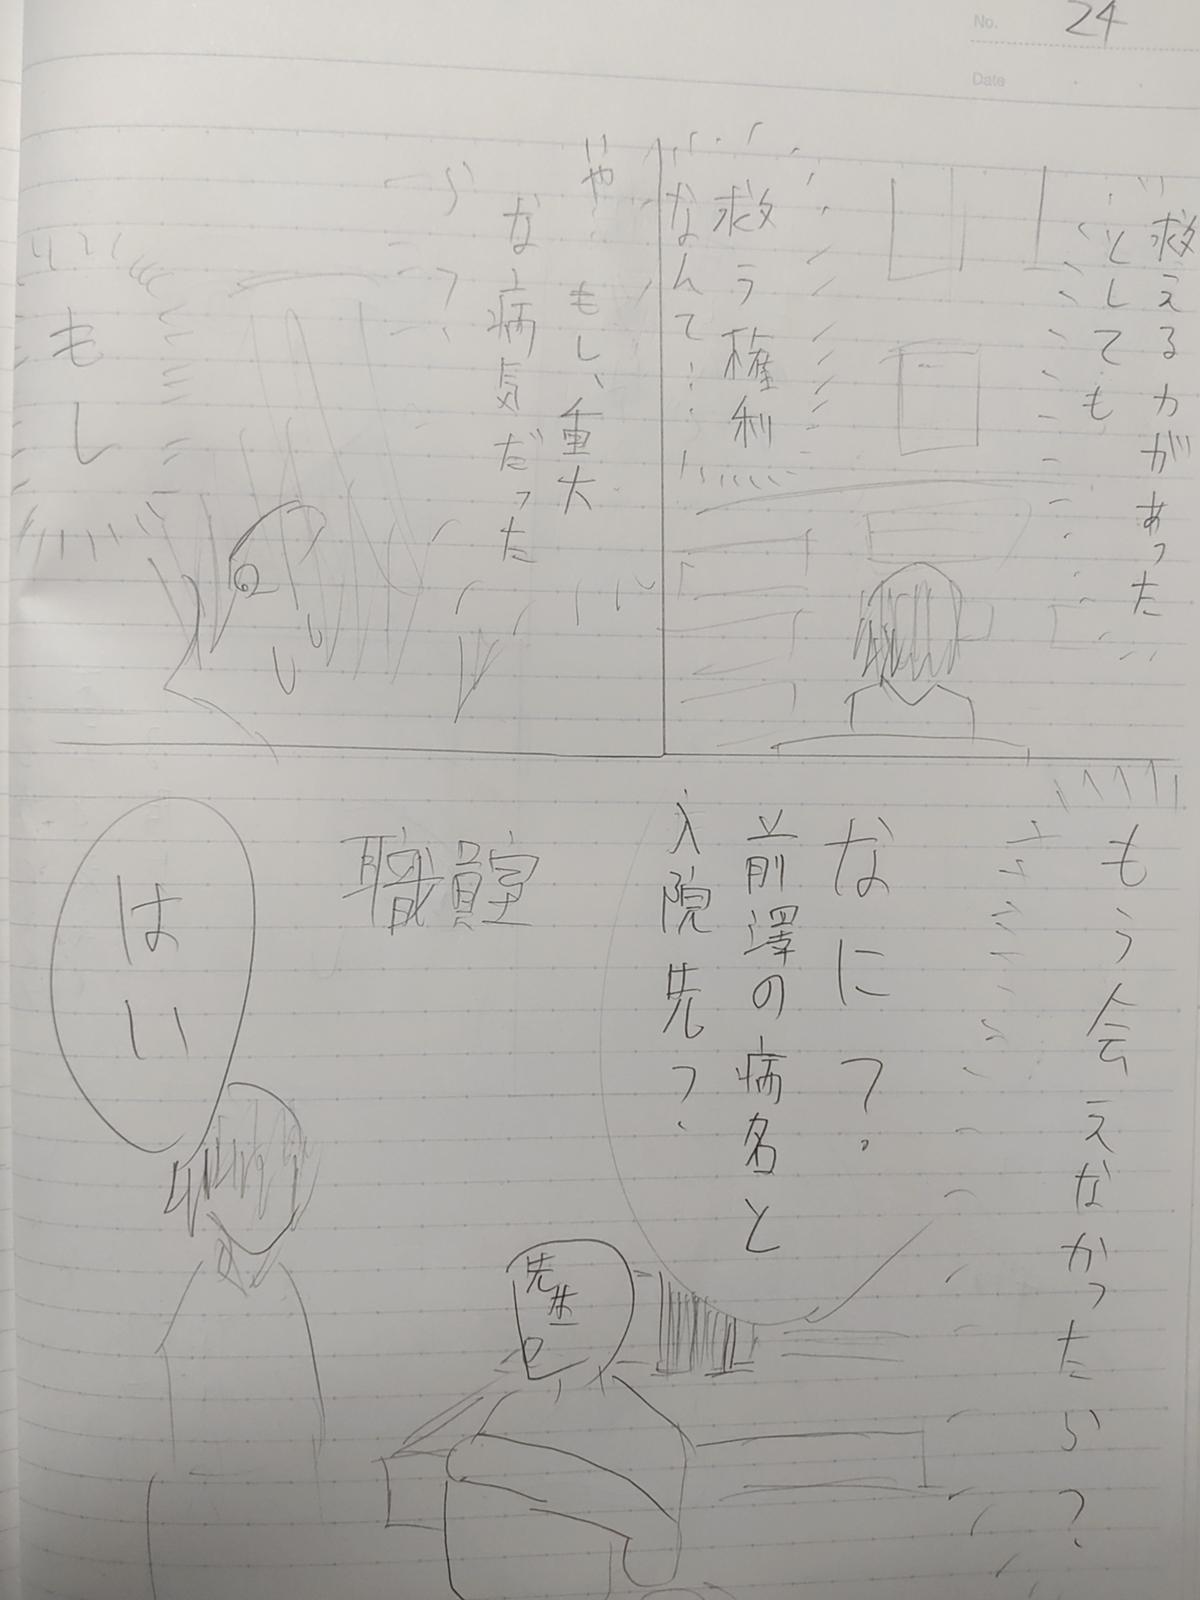 No. 24
Date
救える力があった
としても
救う権利
なんて…
じゃ…
もし、重大
な病気だった
ら?
もし
もう会えなかったら?
なに?
前澤の病名と
入院先?
職員室
先生
はい